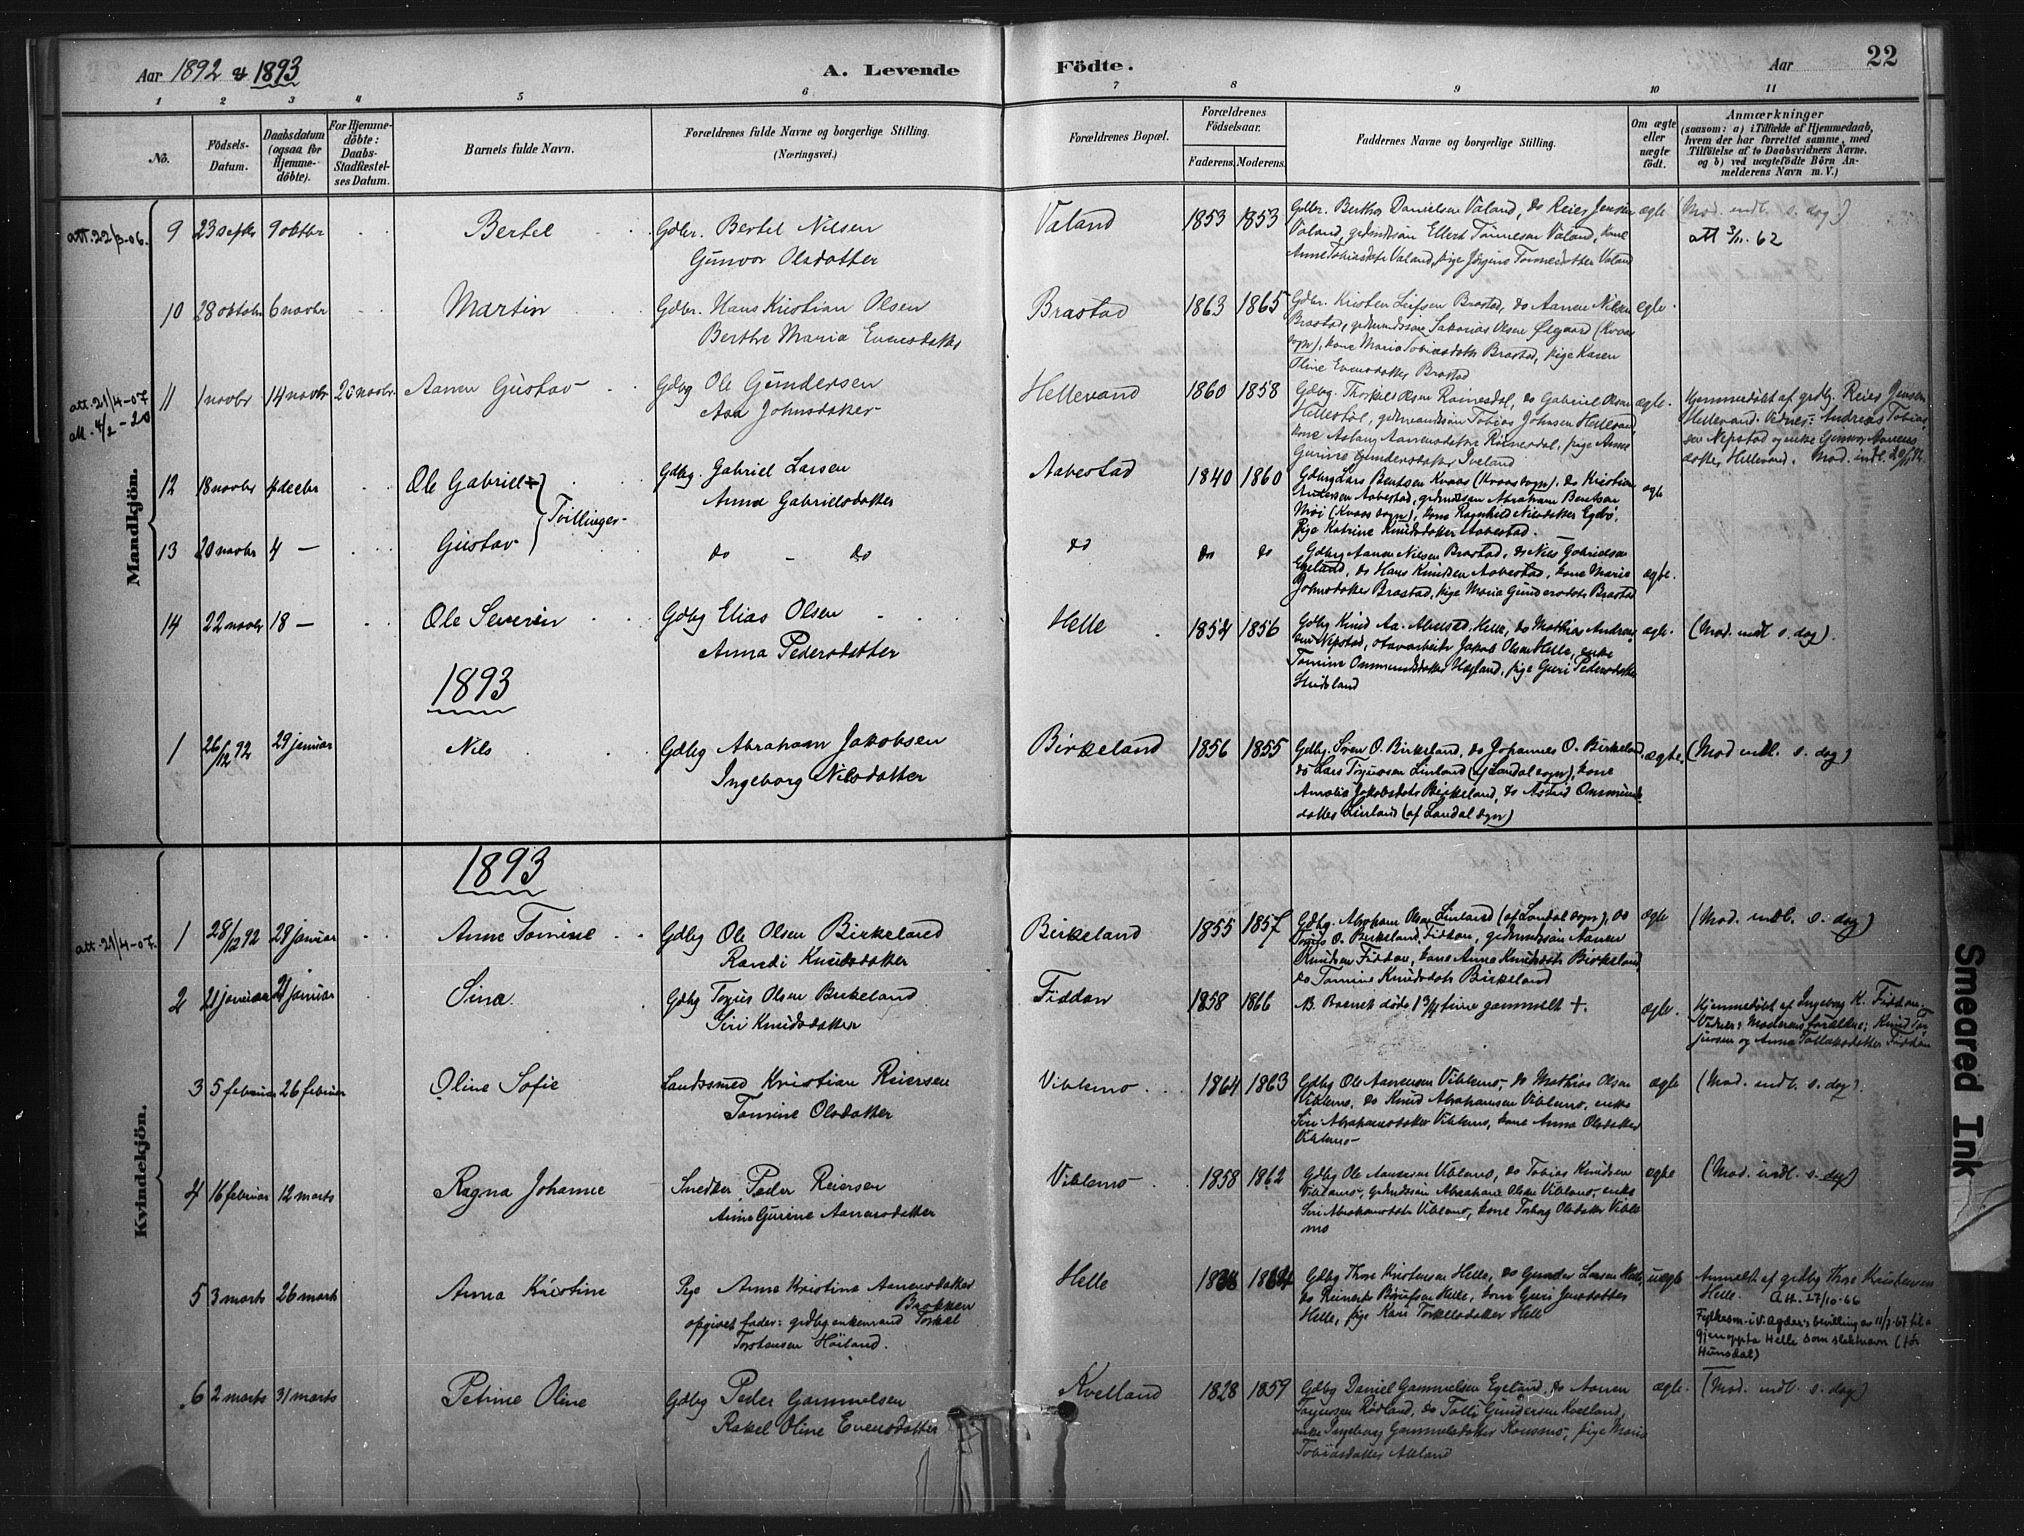 Aar 1892 & 1893
A. Levende
Födte.
Aar
22
1 2 3 4 5 6 7 8 9 10 11
No.
Födsels-
Datum.
Daabsdatum
(ogsaa for
Hjemme-
döbte).
For Hjemme-
döbte:
Daabs-
Stadfæstel-
ses Datum.
Barnets fulde Navn.
Forældrenes fulde Navne og borgerlige Stilling.
(Næringsvei.)
Forældrenes Bopæl.
Forældrenes
Födselsaar.
Faderens. Moderens.
Faddernes Navne og borgerlige Stilling.
Om ægte
eller
uægte
født.
Anmærkninger
(saasom: a) i Tilfælde af Hjemmedaab,
hvem der har forrettet samme, med
Tilföielse af to Daabsvidners Navne.
og b) ved uægtefödte Börn An-
melderens Navn m. V.)
Mandkjön.
att. 22/3-06.
9 23 septbr 9 oktbr Bertel Gdbr. Bertel Nilsen
Gunvor Olsdatter
Valand 1853 1853
Gdbr. Berthor Danielsen Valand, do Reier Jensen
Valand, gdmdssön Ellert Tönnesen Valand, kone
Anne Tobiasdatr Valand, pige Jörgine Tönnesdatter Valand
ægte (Mod. indl. s. dag)
att 3/11. 62
10 28 oktobr 6 novbr Martin Gdbr. Hans Kristian Olsen
Berthe Maria Evensdatter
Brastad 1863 1865
Gdbr. Kristen Leifsen Brastad, do Aanen Nilsen
Brastad, gdmandssön Sakarias Olsen Øigaard (Kvaas
sogn), kone Maria Tobiasdatr Brastad, pige Karen
Oline Evensdatter Brastad
ægte.
att. 21/4-07
att. 4/2-20
11 1 novbr 14 novbr 20 novbr. Aanen Gustav Gdbg Ole Gundersen
Asa Johnsdatter
Hellevand 1860 1858
Gdbg. Thorkel Olsen Roinesdal, do Gabriel Olsen
Hillestöl, gdmandssön Tobias Johnsen Hellevand,
kone Aslaug Aanensdatter Roinesdal, pige Anne
Gurine Gundersdatter Iveland
ægte.
Hjemmedöbt af grdbg. Reier Jensen
Hellevand. Vidner: Andreas Tobia-
sen Nepstad og enke Gunvor Aanens
datter Hellevand. Mod. indl. 20/11 92.
12 18 novbr 4 decbr Ole Gabriel +
Gdbg. Gabriel Larsen
Anna Gabrielsdatter
Aabestad 1840 1860
Gdbg Lars Bentsen Kvaas (Kvaas sogn), do Kristian
Andersen Aabestad, gdmdssön Abraham Bentsen
Möi (Kvaas sogn), kone Ragnhild Nilsdatter Egebö,
pige Katrine Knudsdatter Aabestad.
ægte
Tvillinger
13 20 novbr 4 — Gustav do - do do do do
Gdbg Aanen Nilsen Brastad, do Nils Gabrielsen
Egeland, do Hans Knudsen Aabestad, kone Marie
Johnsdatter Brastad, pige Maria Gundersdatr Brastad
ægte.
14 22 novbr 18 — Ole Severin Gdbg Elias Olsen
Anna Pedersdatter
Helle 1854 1856
Gdbg Knud Aa. Abelsted Helle, do Mathias Andrea-
sen Nepstad, stavarbeider Jakob Olsen Helle, enke
Tomine Ommundsdatter Hægland, pige Guri Pedersdatter
Studsland
ægte. (Mod. indl s. dag).
1893
1 26/12 92 29 januar Nils Gdbg Abraham Jakobsen
Ingeborg Nilsdatter
Birkeland 1856 1855
Gdbg. Sven O. Birkeland, do Johannes O. Birkeland
do Lars Torjussen Linland (af Landal sogn), kone
Amalia Jakobsdatr Birkeland, do Astrid Ommunds-
datter Linland (af Landal sogn)
ægte. (Mod indl. s. dag)
Kvindekjön.
1893
att. 21/4-07.
1 28/12 92 29 januar Anne Tomine Gdbg Ole Olsen Birkeland
Randi Knudsdatter
Birkeland 1855 1857
Gdbg. Abraham Olsen Linland (af Landal sogn), do
Torjus O. Birkeland, Fiddan, gdmandssön Aanen
Knudsen Fiddan, kone Anna Knudsdatr Birkeland,
do Tomine Knudsdatr Birkeland
ægte (Mod. indl. s. dag)
2 21 januar 21 januar Sina Gdbg Torjus Olsen Birkeland
Siri Knudsdatter
Fiddan 1858 1866
NB. Barnet döde 1 3/4 time gammelt +.
ægte.
Hjemmedöbt af Ingeborg K. Fiddan.
Vidner: Moderens forældre; Knud Tor-
jussen og Anna Tallaksdatter Fiddan
3 5 februar 26 februar Oline Sofie Landssmed Kristian Reiersen
Tomine Olsdatter
Viblemo 1864 1863
Gdbg Ole Aanensen Viblemo, do Mathias Olsen
Viblemo, do Knud Abrahamsen Viblemo, enke
Siri Abrahamsdatter Viblemo, kone Anna Olsdatter
Viblemo
ægte (Mod. indl. s. dag).
4 16 februar 12 marts Ragna Johanne Snedker Peder Reiersen
Anne Gurine Aanensdatter
Viblemo 1858 1862
Gdbg Ole Aanensen Viblemo, do Tobias Knudsen
Viblemo, gdmdssön Abraham Olsen Viblemo, enke
Siri Abrahamsdatr Viblemo, kone Torborg Olsdatter Vible
mo
ægte (Mod. indl. s. dag)
5 3 marts 26 marts Anna Kristine Pige Anne Kristine Aanensdatter
Brokken
opgivet fader: grdbg enkemand Torkel
Torstensen Höiland.
Helle
Gdbg Thore Kristensen Helle, do Gunder Larsen Helle,
do Reinert Börufsen Helle, kone Guri Jensdatter
Helle, pige Kari Torkelsdatter Helle
uægte
Anmeldt af grdbg Thore Kristensen
Helle. Att. 17/10-66
Fylkesm. i V. Agder's bevilling av 11/3-67 til å
gjenoppta Helle som slektnavn (før
Hunsdal)
6 2 marts 31 marts Petrine Oline Gdbg Peder Gammelsen
Rakel Oline Evensdatter
Kvelland 1828 1859
Gdbg Daniel Gammelsen Egeland, do Aanen
Torjussen Rödland, do Tolli Gundersen Kvelland,
enke Ingeborg Gammelsdatter Konsmo, pige Marie
Tobiasdatter Alkland
ægte. (Mod. indl. s. dag)
Smeared Ink